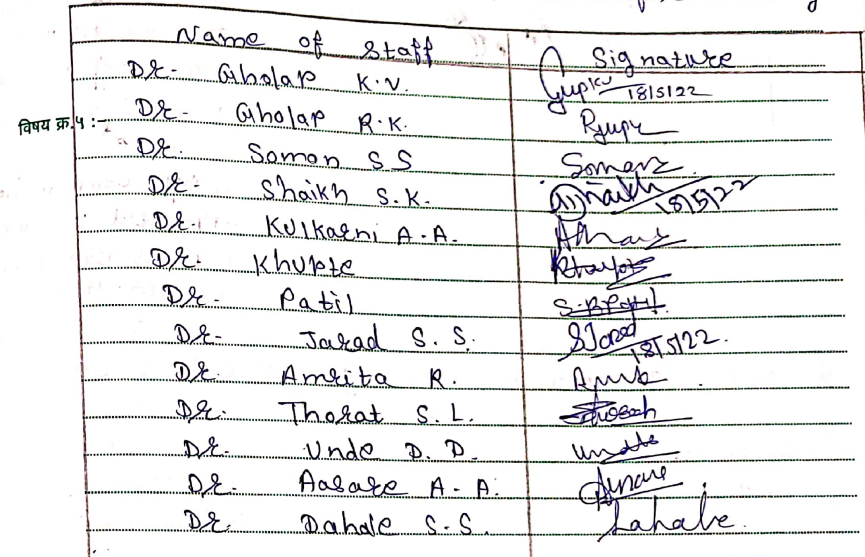 Name of Staff Signature
Dr. Gholap K.V. 18/5/22
विषय क्र. ५ :- Dr. Gholap R.K.
Dr. Soman S S
Dr. Shaikh S.K. Shaikh 18/5/22
Dr. Kulkarni A.A.
Dr. Khupte
Dr. Patil S.B.Patil
Dr. Jarad S.S. SJarad 18/5/22
Dr. Amrita R.
Dr. Thorat S.L.
Dr. Unde D.D.
Dr. Aasare A.A.
Dr. Dahale S.S.